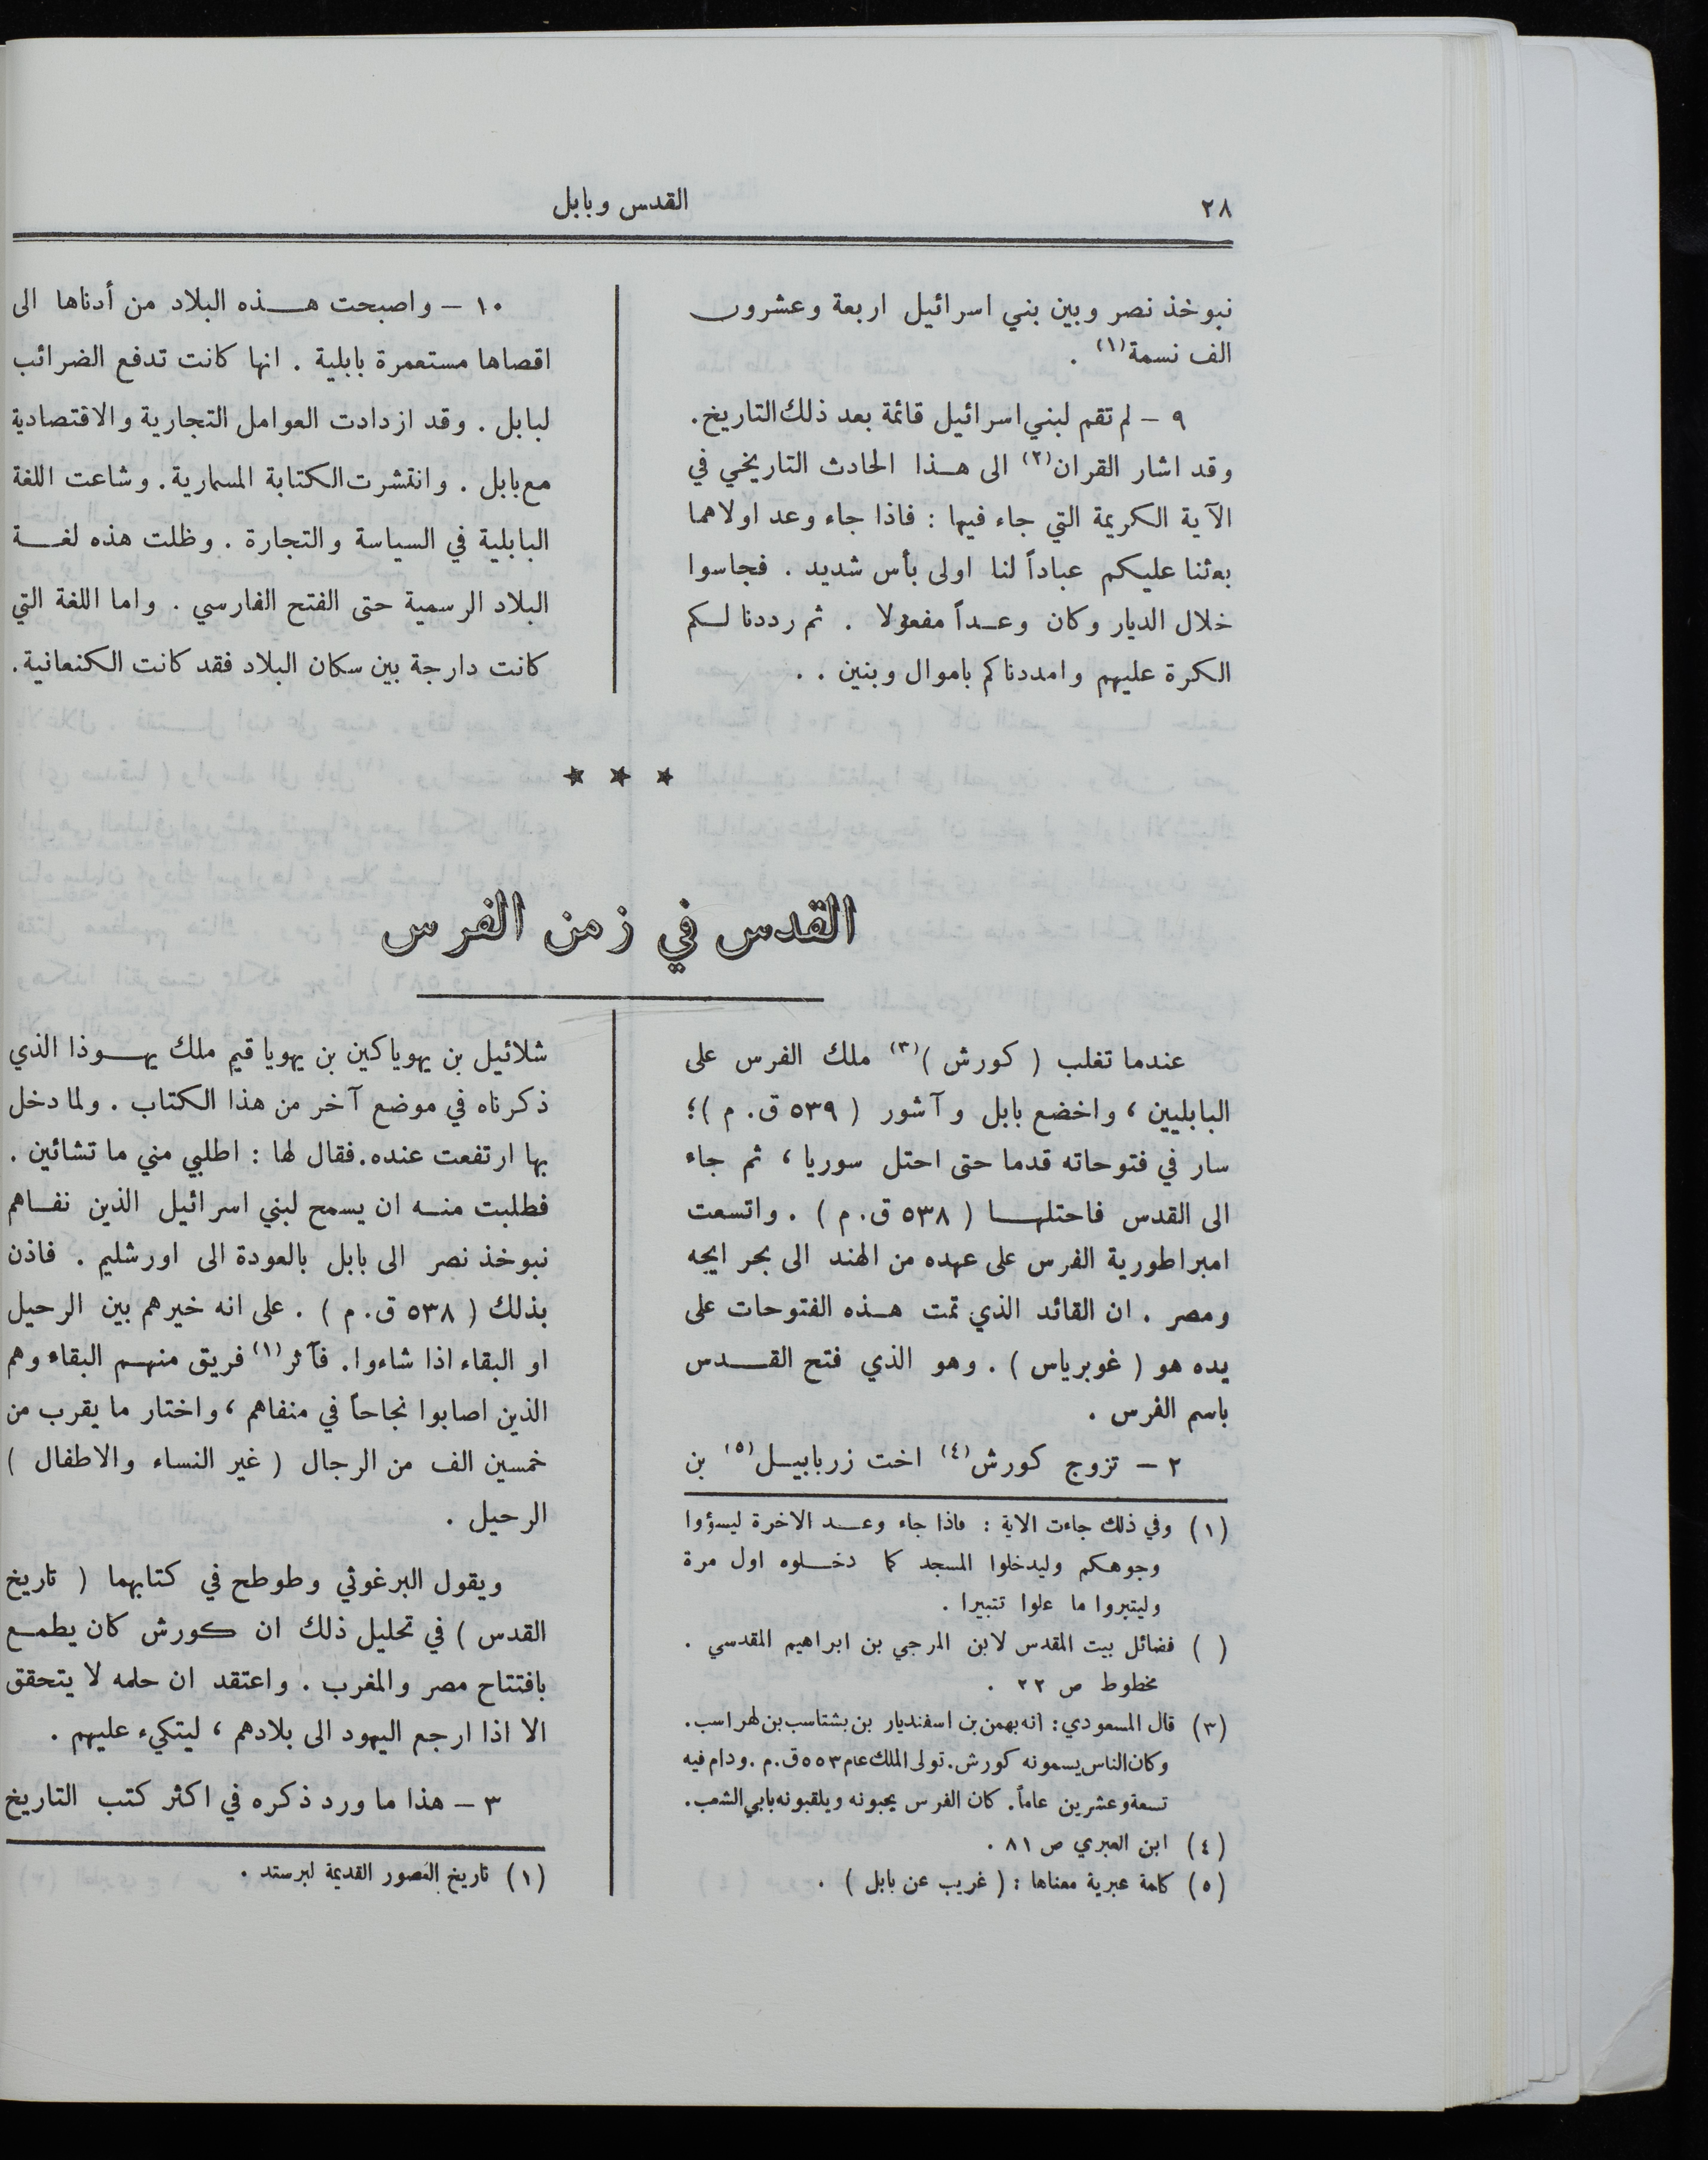 ٢٨
القدس وبابل
نبوخذ نصر وبين بني اسرائيل اربعة وعشرون
الف نسمة(١) .
٩ – لم تقم لبني اسرائيل قائمة بعد ذلك التاريخ.
وقد اشار القران(٢) الى هـذا الحادث التاريخي في
الآية الكريمة التي جاء فيها : فاذا جاء وعد اولاهما
بعثنا عليكم عباداً لنا اولى بأس شديد . فجاسوا
خلال الديار وكان وعـداً مفعولا . ثم رددنا لـكم
الكرة عليهم وامددناكم باموال وبنين . .
١٠ – واصبحت هـــذه البلاد من أدناها الى
اقصاها مستعمرة بابلية . انها كانت تدفع الضرائب
لبابل . وقد ازدادت العوامل التجارية والاقتصادية
مع بابل . وانتشرت الكتابة المسمارية. وشاعت اللغة
البابلية في السياسة والتجارة . وظلت هذه لغــة
البلاد الرسمية حتى الفتح الفارسي . واما اللغة التي
كانت دارجة بين سكان البلاد فقد كانت الكنعانية.
★ ★ ★
القدس في زمن الفرس
عندما تغلب ( كورش )(٣) ملك الفرس على
البابليين ، واخضع بابل وآشور ( ٥٣٩ ق. م )؛
سار في فتوحاته قدما حتى احتل سوريا ، ثم جاء
الى القدس فاحتلهــا ( ٥٣٨ ق. م ) . واتسعت
امبراطورية الفرس على عهده من الهند الى بحر ايجه
ومصر . ان القائد الذي تمت هـذه الفتوحات على
يده هو ( غوبرياس ) . وهو الذي فتح القــدس
باسم الفرس .
٢ – تزوج كورش(٤) اخت زربابيـل(٥) بن
(١) وفي ذلك جاءت الاية : فاذا جاء وعــد الاخرة ليسؤوا
وجوهكم وليدخلوا المسجد كما دخـلوه اول مرة
وليتبروا ما علوا تتبيرا .
( ) فضائل بيت المقدس لابن المرجي بن ابراهيم المقدسي .
مخطوط ص ٢٢ .
(٣) قال المسعودي: انه بهمن بن اسفنديار بن بشتاسب بن لهراسب.
وكان الناس يسمونه كورش. تولى الملك عام ٥٥٣ ق.م. ودام فيه
تسعة وعشرين عاماً. كان الفرس يحبونه ويلقبونه بابي الشعب.
(٤) ابن العبري ص ٨١ .
(٥) كلمة عبرية معناها : ( غريب عن بابل ) .
شلائيل بن يهوياكين بن يهوياقيم ملك يهــوذا الذي
ذكرناه في موضع آخر من هذا الكتاب . ولما دخل
بها ارتفعت عنده. فقال لها : اطلبي مني ما تشائين .
فطلبت منــه ان يسمح لبني اسرائيل الذين نفــاهم
نبوخذ نصر الى بابل بالعودة الى اورشليم . فاذن
بذلك ( ٥٣٨ ق. م ) . على انه خيرهم بين الرحيل
او البقاء اذا شاءوا. فآثر(١) فريق منهـم البقاء وهم
الذين اصابوا نجاحاً في منفاهم ، واختار ما يقرب من
خمسين الف من الرجال ( غير النساء والاطفال )
الرحيل .
ويقول البرغوثي وطوطح في كتابهما ( تاريخ
القدس ) في تحليل ذلك ان كورش كان يطمــع
بافتتاح مصر والمغرب . واعتقد ان حلمه لا يتحقق
الا اذا ارجع اليهود الى بلادهم ، ليتكيء عليهم .
٣ – هذا ما ورد ذكره في اكثر كتب التاريخ
(١) تاريخ العصور القديمة لبرستد .